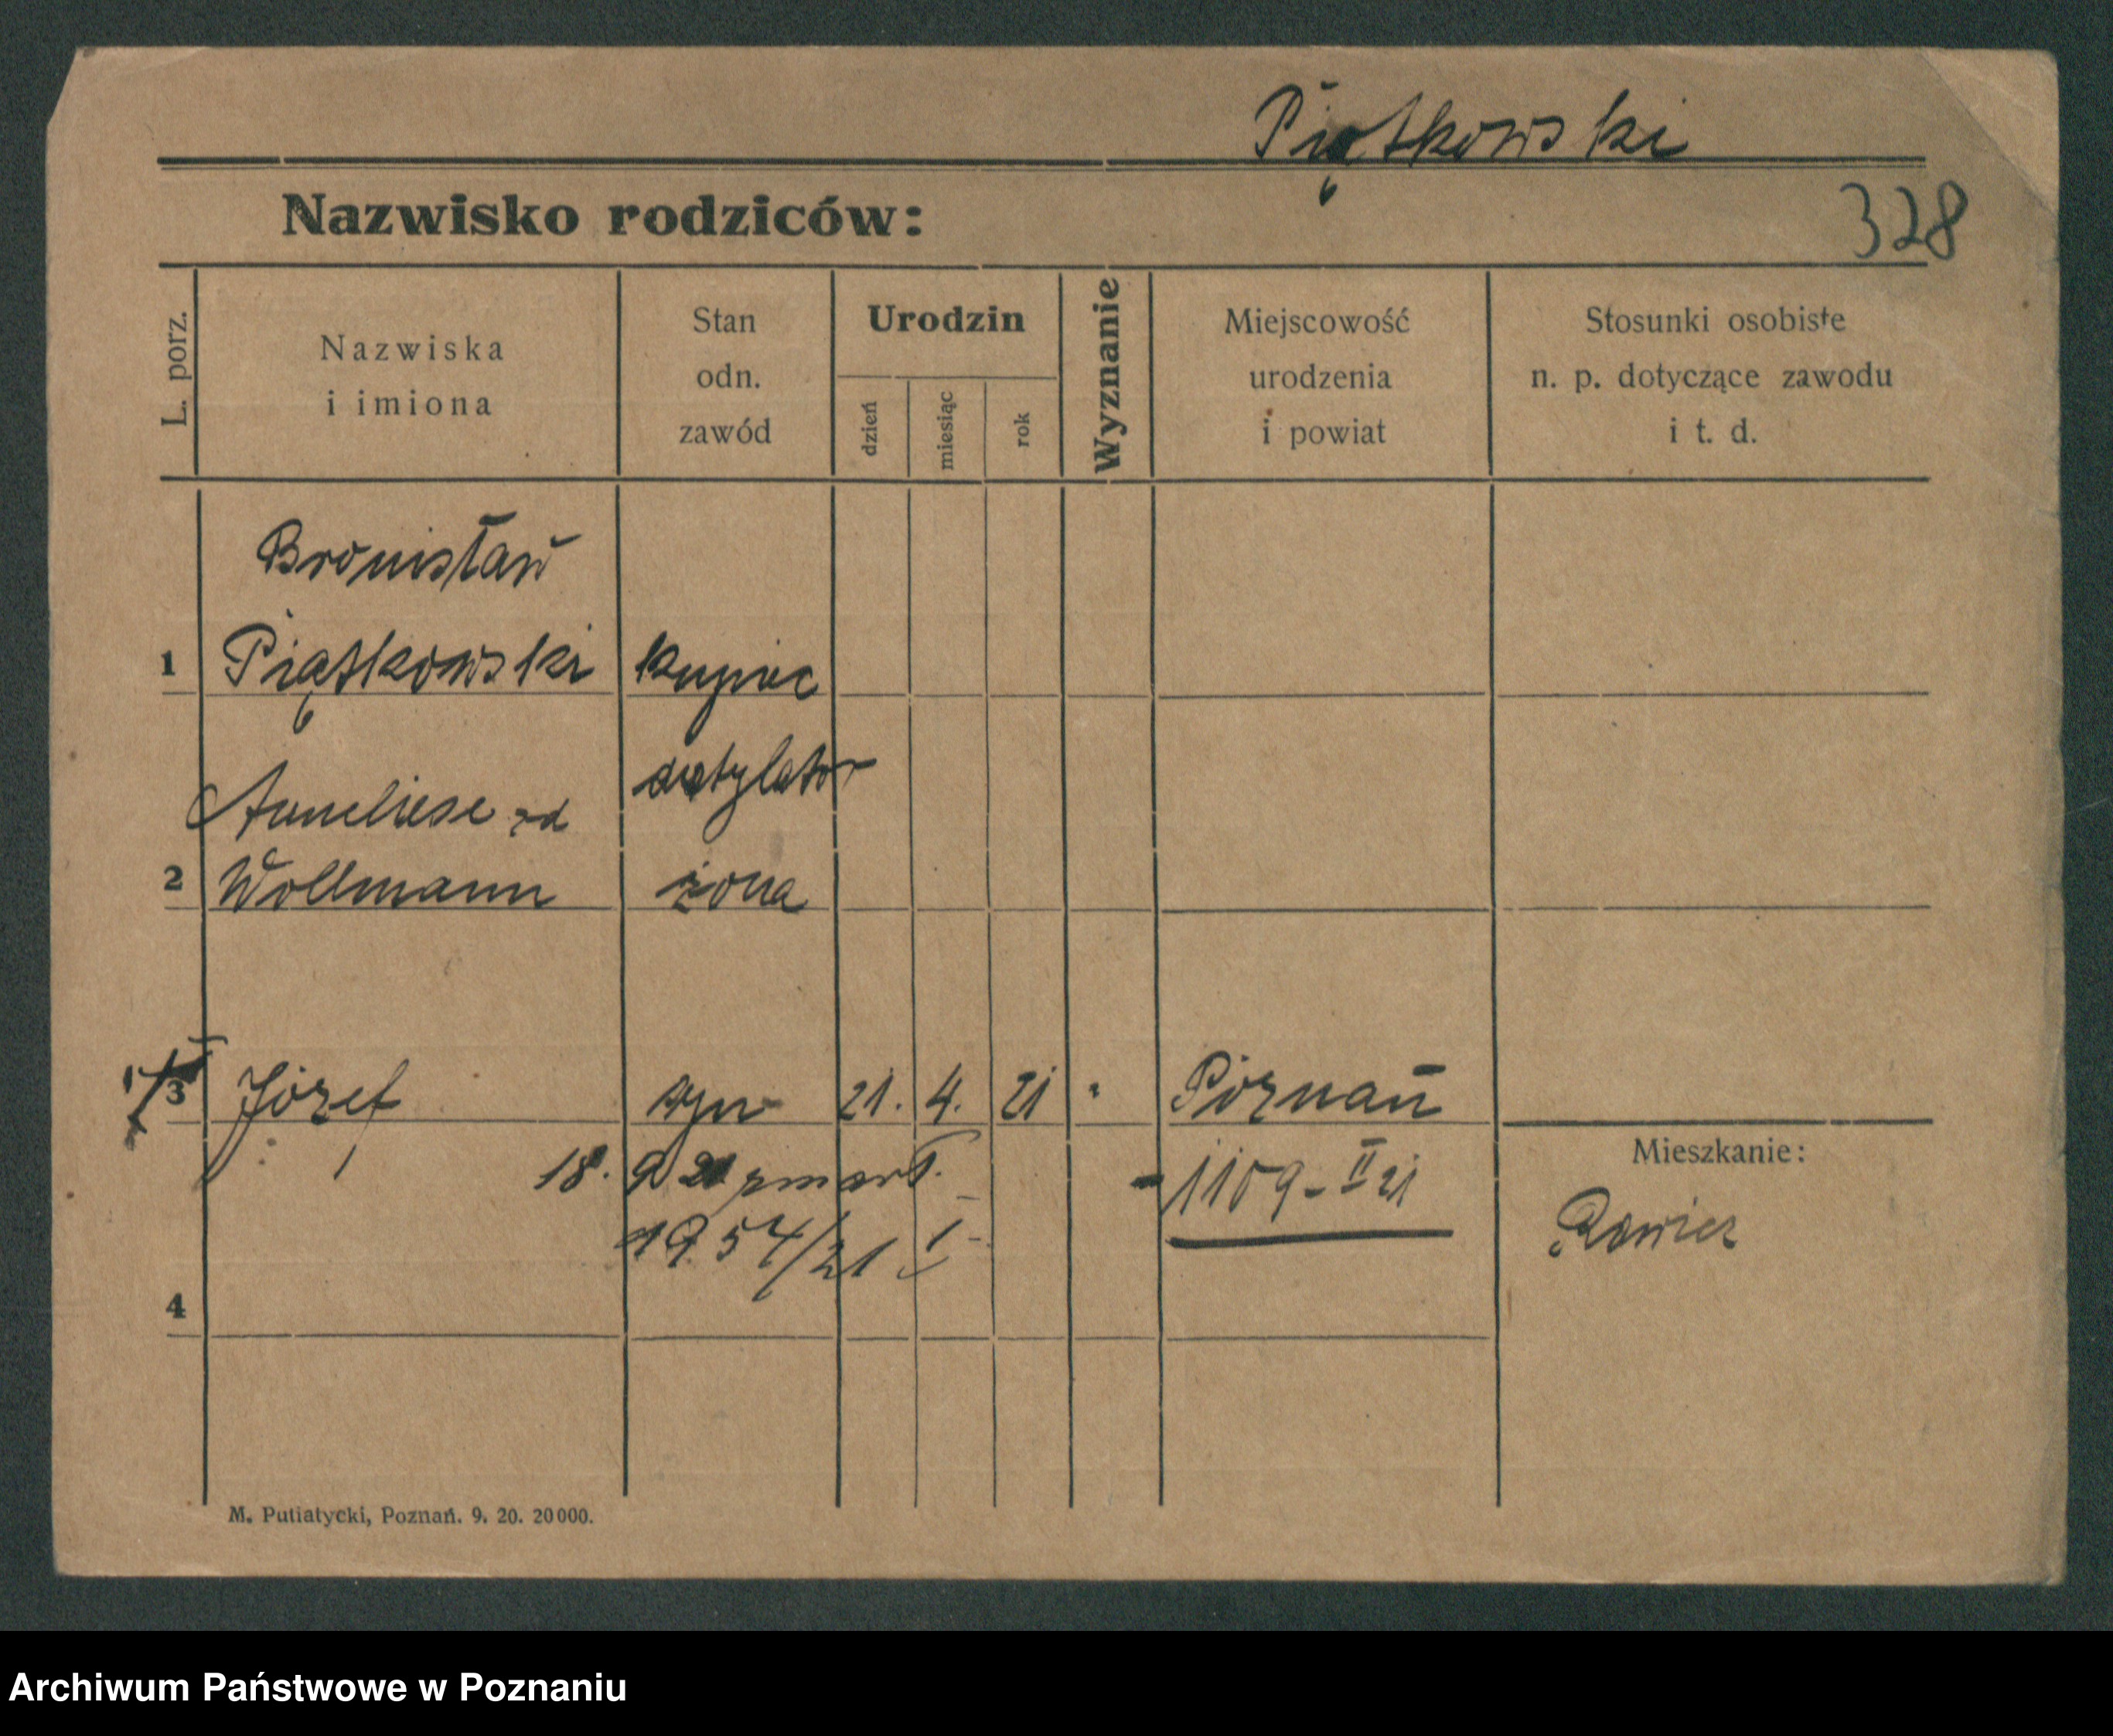 Piątkowski
Nazwisko rodziców:
328
L. porz.
Nazwiska
i imiona
Stan
odn.
zawód
Urodzin
dzień
miesiąc
rok
Wyznanie
Miejscowość
urodzenia
i powiat
Stosunki osobiste
n. p. dotyczące zawodu
i t. d.
Bronisław
1 Piątkowski kupiec
destylator
Anneliese zd
2 Wollmann żona
3 Józef syn 21. 4. 21 " Poznań
18. 9 21 zmarł. 1109-II 21
1954/21 I
Mieszkanie:
Rawicz
4
M. Putiatycki, Poznań. 9. 20. 20000.
Archiwum Państwowe w Poznaniu